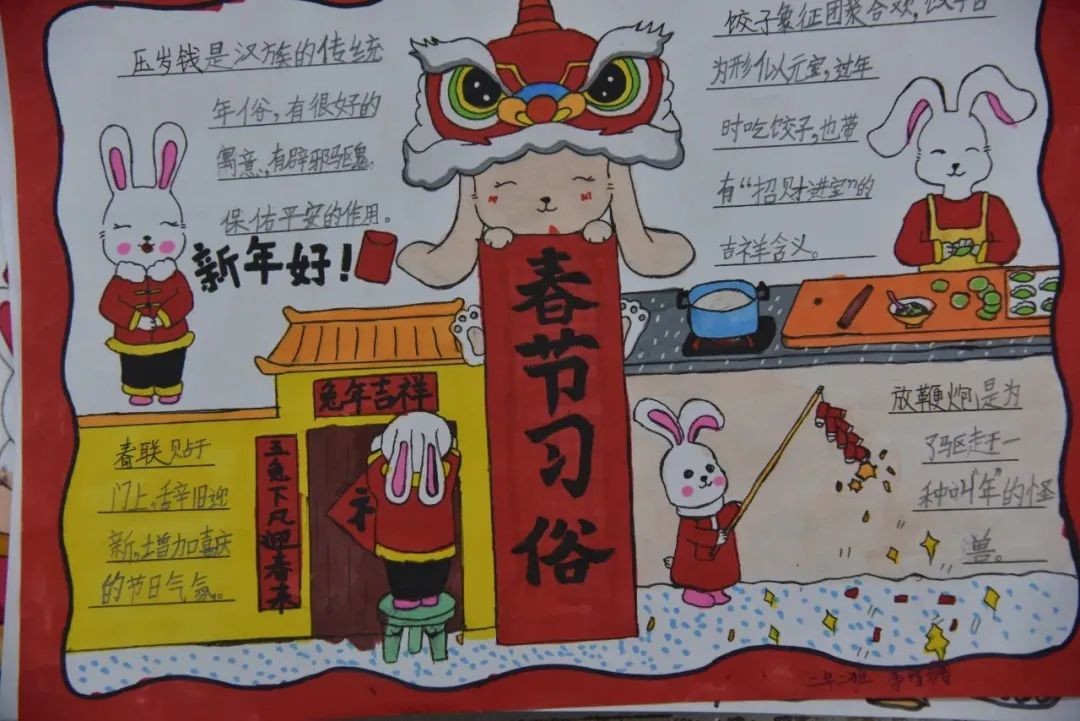 压岁钱是汉族的传统
年俗,有很好的
寓意,有辟邪驱鬼,
保佑平安的作用。
新年好!
春节习俗
饺子象征团聚合欢,饺子因
为形似元宝,过年
时吃饺子,也带
有“招财进宝”的
吉祥含义。
兔年吉祥
玉兔下凡迎春来
春联贴于
门上,辞旧迎
新,增加喜庆
的节日气氛。
放鞭炮,是为
了驱赶走一
种叫“年”的怪
兽。
二年二班